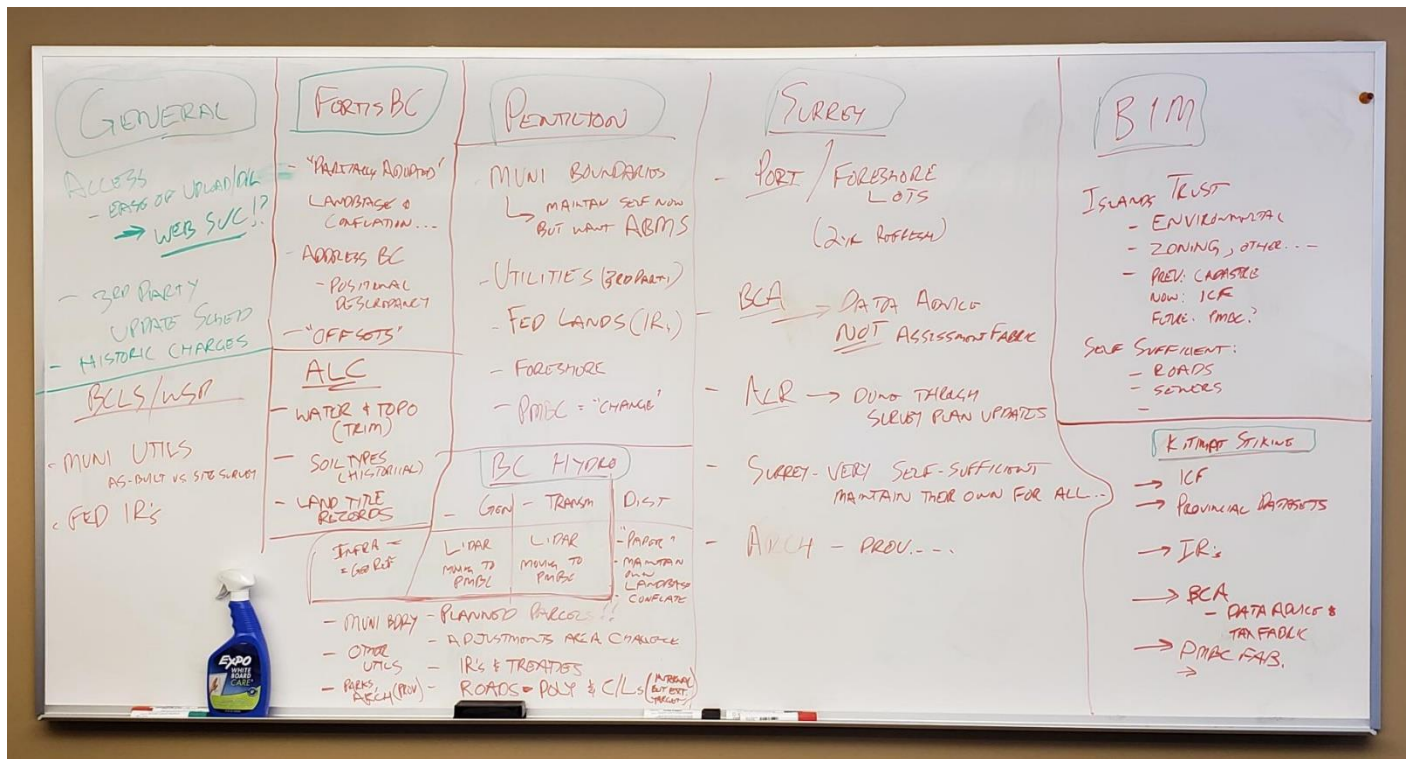 GENERAL
ACCESS
- EASE OF UPLOAD/DL
→ WEB SVC!?
- 3RD PARTY
UPDATE SCHED
- HISTORIC CHARGES
BCLS/WSP
- MUNI UTILS
AS-BUILT VS. SITE SURVEY
- FED IR's
FORTIS BC
- "PARTIALLY ADOPTED"
LANDBASE &
CONFLATION...
- ADDRESS BC
- POSITIONAL
DESCREPANCY
- "OFFSETS"
ALC
- WATER & TOPO
(TRIM)
- SOIL TYPES
(HISTORICAL)
- LAND TITLE
RECORDS
PENTICTON
MUNI BOUNDARIES
MAINTAIN SELF NOW
BUT WANT ABMS
- UTILITIES (3RD PARTY)
- FED LANDS (IR's)
- FORESHORE
- PMBC = "CHANGE"
BC HYDRO
- GEN - TRANSM DIST
INFRA =
= GEOREF
LIDAR
MOVING TO
PMBC
LIDAR
MOVING TO
PMBC
- "PAPER"
- MAINTAIN
OWN
LANDBASE
- CONFLATE
- MUNI BDRY
- OTHER
UTILS
- PARKS,
ARCH (PROV)
- PLANNED PARCELS!!
- ADJUSTMENTS AREA CHANGE
- IR's & TREATIES
- ROADS = POLY & C/Ls (INTERNAL
BUT EXT.
TARGET)
SURREY
- PORT / FORESHORE
LOTS
(2-YR REFRESH)
- BCA → DATA ADVICE
NOT ASSESSMENT FABRIC
- ALR → DONE THROUGH
SURVEY PLAN UPDATES
- SURREY - VERY SELF-SUFFICIENT
MAINTAIN THEIR OWN FOR ALL...
- ARCH - PROV....
BIM
ISLANDS TRUST
- ENVIRONMENTAL
- ZONING, OTHER....
- PREV: CADASTRE
NOW: ICF
FUTURE: PMBC?
SELF SUFFICIENT:
- ROADS
- SEWERS
-
KITIMAT STIKINE
→ ICF
→ PROVINCIAL DATASETS
→ IR's
→ BCA
- DATA ADVICE &
TAX FABRIC
→ PMBC FAB.
→
EXPO
WHITE
BOARD
CARE